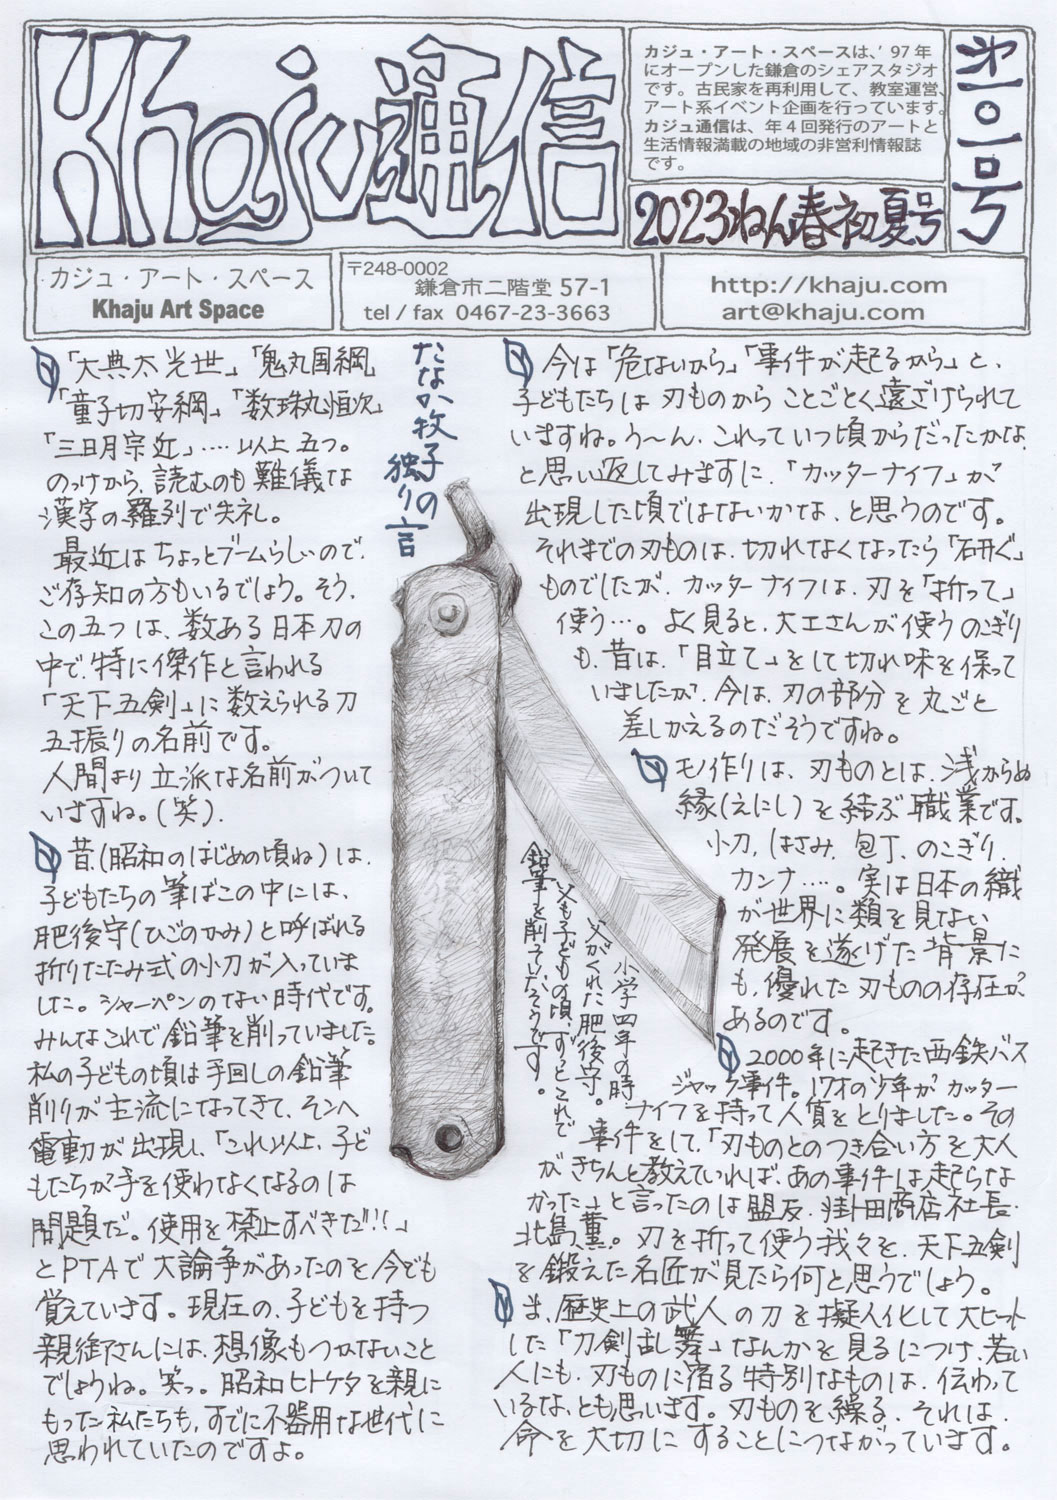 Khaju通信
カジュ・アート・スペースは、'97年
にオープンした鎌倉のシェアスタジオ
です。古民家を再利用して、教室運営、
アート系イベント企画を行っています。
カジュ通信は、年4回発行のアートと
生活情報満載の地域の非営利情報誌
です。
2023ねん春初夏号
第一〇一号
カジュ・アート・スペース
Khaju Art Space
〒248-0002
鎌倉市二階堂 57-1
tel / fax 0467-23-3663
http://khaju.com
art@khaju.com
たなか牧子の
独り言
「大典太光世」「鬼丸国綱」
「童子切安綱」「数珠丸恒次」
「三日月宗近」‥‥以上 五つ。
のっけから、読むのも難儀な
漢字の羅列で失礼。
最近はちょっとブームらしいので、
ご存知の方もいるでしょう。そう、
この五つは、数ある日本刀の
中で、特に傑作と言われる
「天下五剣」に数えられる刀
五振りの名前です。
人間より立派な名前がついて
いますね。(笑)。
昔(昭和のはじめの頃ね)は、
子どもたちの筆ばこの中には、
肥後守(ひごのかみ)と呼ばれる
折りたたみ式の小刀が入っていま
した。シャーペンのない時代です。
みんなこれで鉛筆を削っていました。
私の子どもの頃は手回しの鉛筆
削りが主流になってきて、そこへ
電動が出現し、「これ以上、子ど
もたちが手を使わなくなるのは
問題だ。使用を禁止すべきだ!!」
とPTAで大論争があったのを今でも
覚えています。現在の、子どもを持つ
親御さんには、想像もつかないこと
でしょうね。笑っ。昭和ヒトケタを親に
もった私たちも、すでに不器用な世代に
思われていたのですよ。
今は「危ないから」「事件が起るから」と、
子どもたちは刃ものからことごとく遠ざけられて
いますね。う〜ん、これっていつ頃からだったかな、
と思い返してみますに、「カッターナイフ」が
出現した頃ではないかな、と思うのです。
それまでの刃ものは、切れなくなったら「研ぐ」
ものでしたが、カッターナイフは、刃を「折って」
使う…。よく見ると、大工さんが使うのこぎり
も、昔は、「目立て」をして切れ味を保って
いましたが、今は、刃の部分を丸ごと
差しかえるのだそうですね。
モノ作りは、刃ものとは、浅からぬ
縁(えにし)を結ぶ職業です。
小刀、はさみ、包丁、のこぎり、
カンナ‥‥。実は日本の織
が世界に類を見ない
発展を遂げた背景に
も、優れた刃ものの存在が
あるのです。
2000年に起きた西鉄バス
ジャック事件。17才の少年がカッター
ナイフを持って人質をとりました。その
事件をして、「刃ものとのつき合い方を大人
がきちんと教えていれば、あの事件は起らな
かった」と言ったのは盟友、掛田商店社長、
北島 薫。刃を折って使う我々を、天下五剣
を鍛えた名匠が見たら何と思うでしょう。
ま、歴史上の武人の刀を擬人化して大ヒット
した「刀剣乱舞」なんかを見るにつけ、若い
人にも、刃ものに宿る特別なものは、伝わって
いるな、とも思います。刃ものを繰る、それは、
命を大切にすることにつながっています。
小学四年の時
父がくれた肥後守。
父も子どもの頃、ずっとこれで
鉛筆を削っていたそうです。